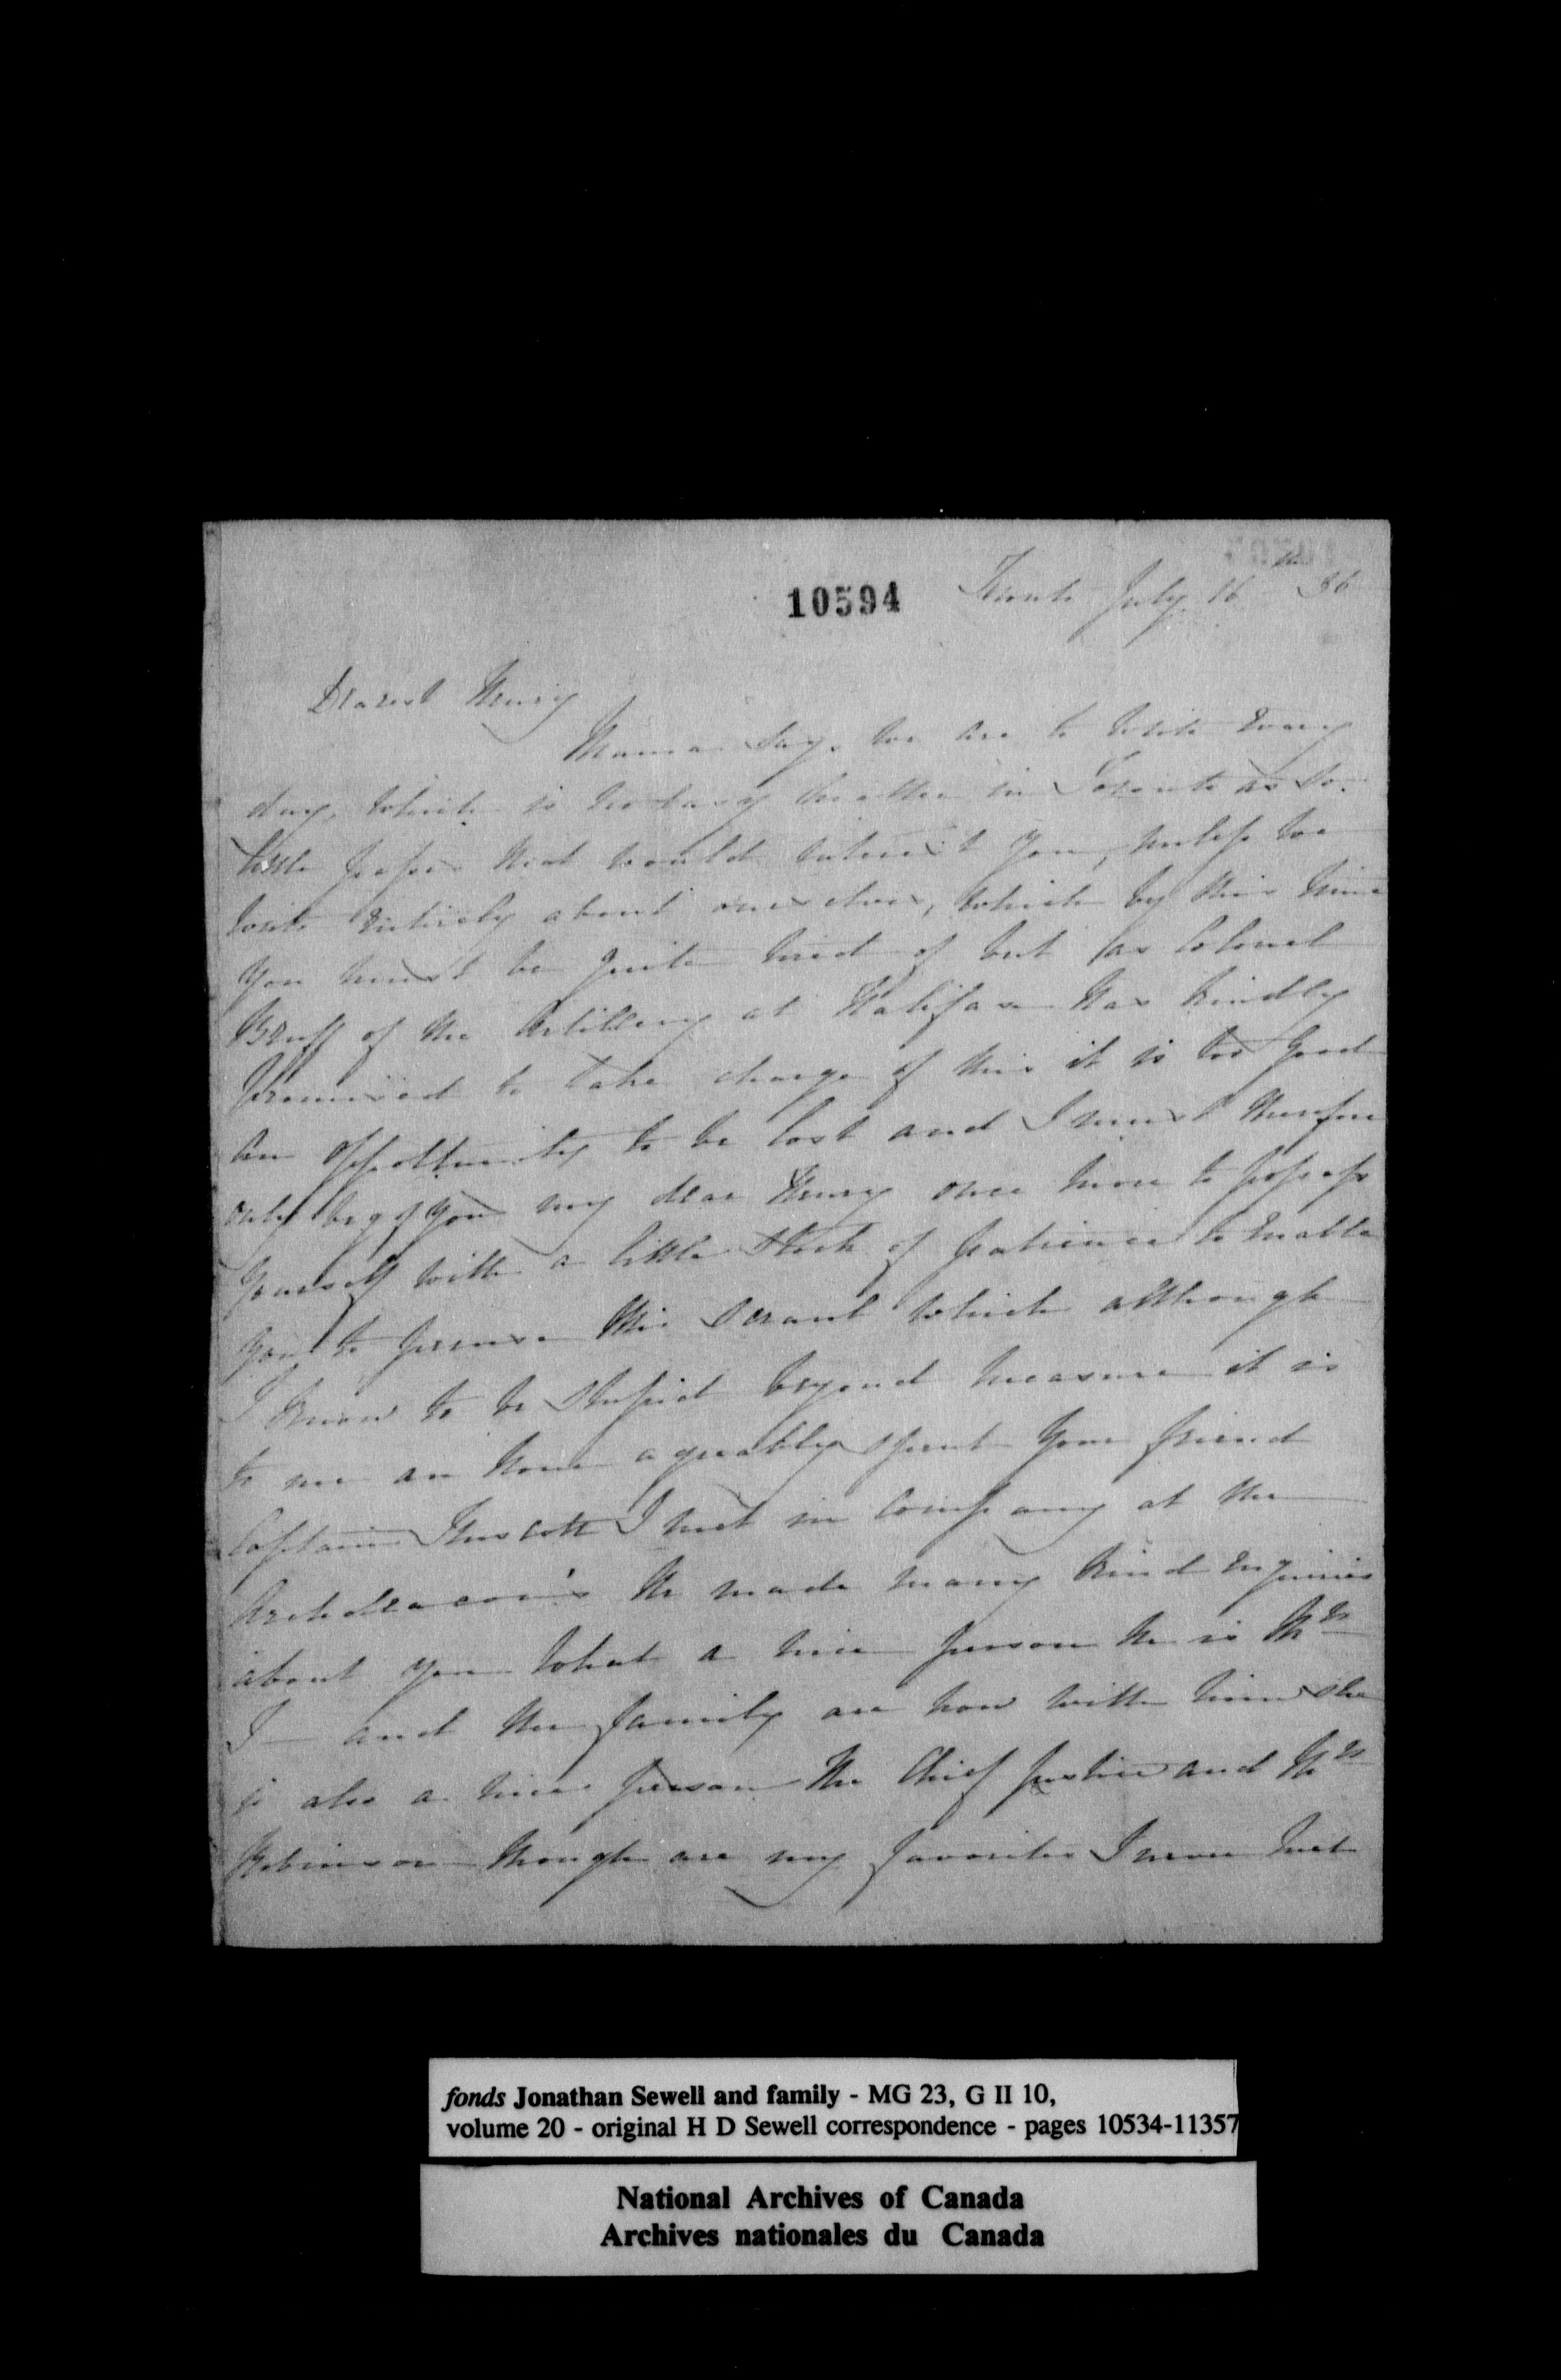 10594
Toronto July 16th 36
Dearest Henry
Mama says we are to write every
day, which is no easy matter in Toronto as so
little passes that would interest you, unless we
write entirely about ourselves, which by this time
you must be quite tired of but as Colonel
of the Artillery at Halifax has kindly
promised to take charge of this it is too good
an opportunity to be lost and I must therefore
only beg of you my dear Henry once more to possess
yourself with a little stock of patience to enable
you to peruse this scrawl which although
I know to be stupid beyond measure it is
to me an hour agreeably spent Your friend
Captain Truscott I met in company at the
Archdeacon's He made many kind enquiries
about you What a nice person he is Mrs
T— and the family are now with him she
is also a nice person The Chief Justice and Mrs
Robinson though are my favorites I never met
fonds Jonathan Sewell and family - MG 23, G II 10,
volume 20 - original H D Sewell correspondence - pages 10534-11357
National Archives of Canada
Archives nationales du Canada